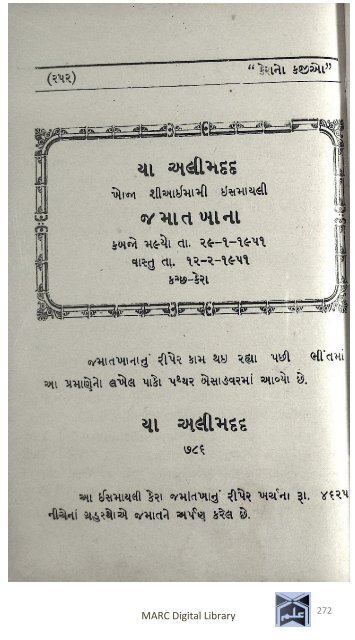 (૨૫૨) “કેરાનો કજીઓ”
યા અલીમદદ
ખોજા શીઆઈમામી ઈસમાયલી
જમાતખાના
કબજો મલ્યો તા. ૨૯-૧-૧૯૫૧
વાસ્તુ તા. ૧૨-૨-૧૯૫૧
કચ્છ-કેરા
જમાતખાનાનું રીપેર કામ થઇ રહ્યા પછી ભીંતમાં
આ પ્રમાણેનો લખેલ પાકો પથ્થર બેસાડવરમાં આવ્યો છે.
યા અલીમદદ
૭૮૬
આ ઈસમાયલી કેરા જમાતખાનું રીપેર ખર્ચના રૂા. ૪૬૨૫
નીચેનાં ગ્રહસ્થોએ જમાતને અર્પણ કરેલ છે.
MARC Digital Library 272